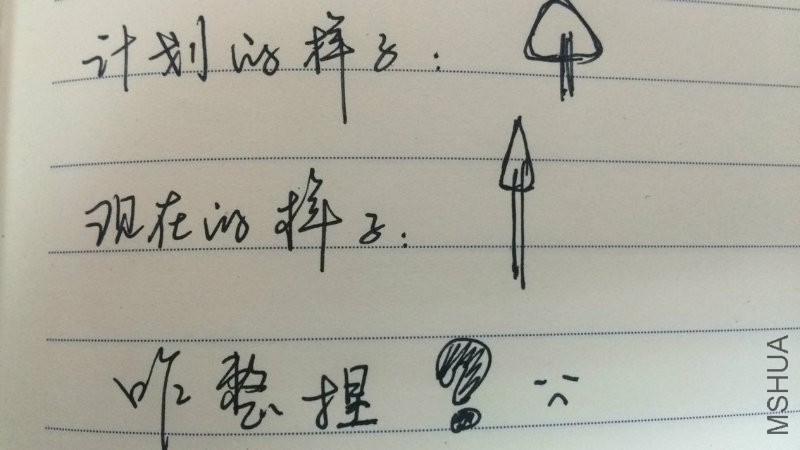 计划的样子：
现在的样子：
咋整捏！
MSHUA